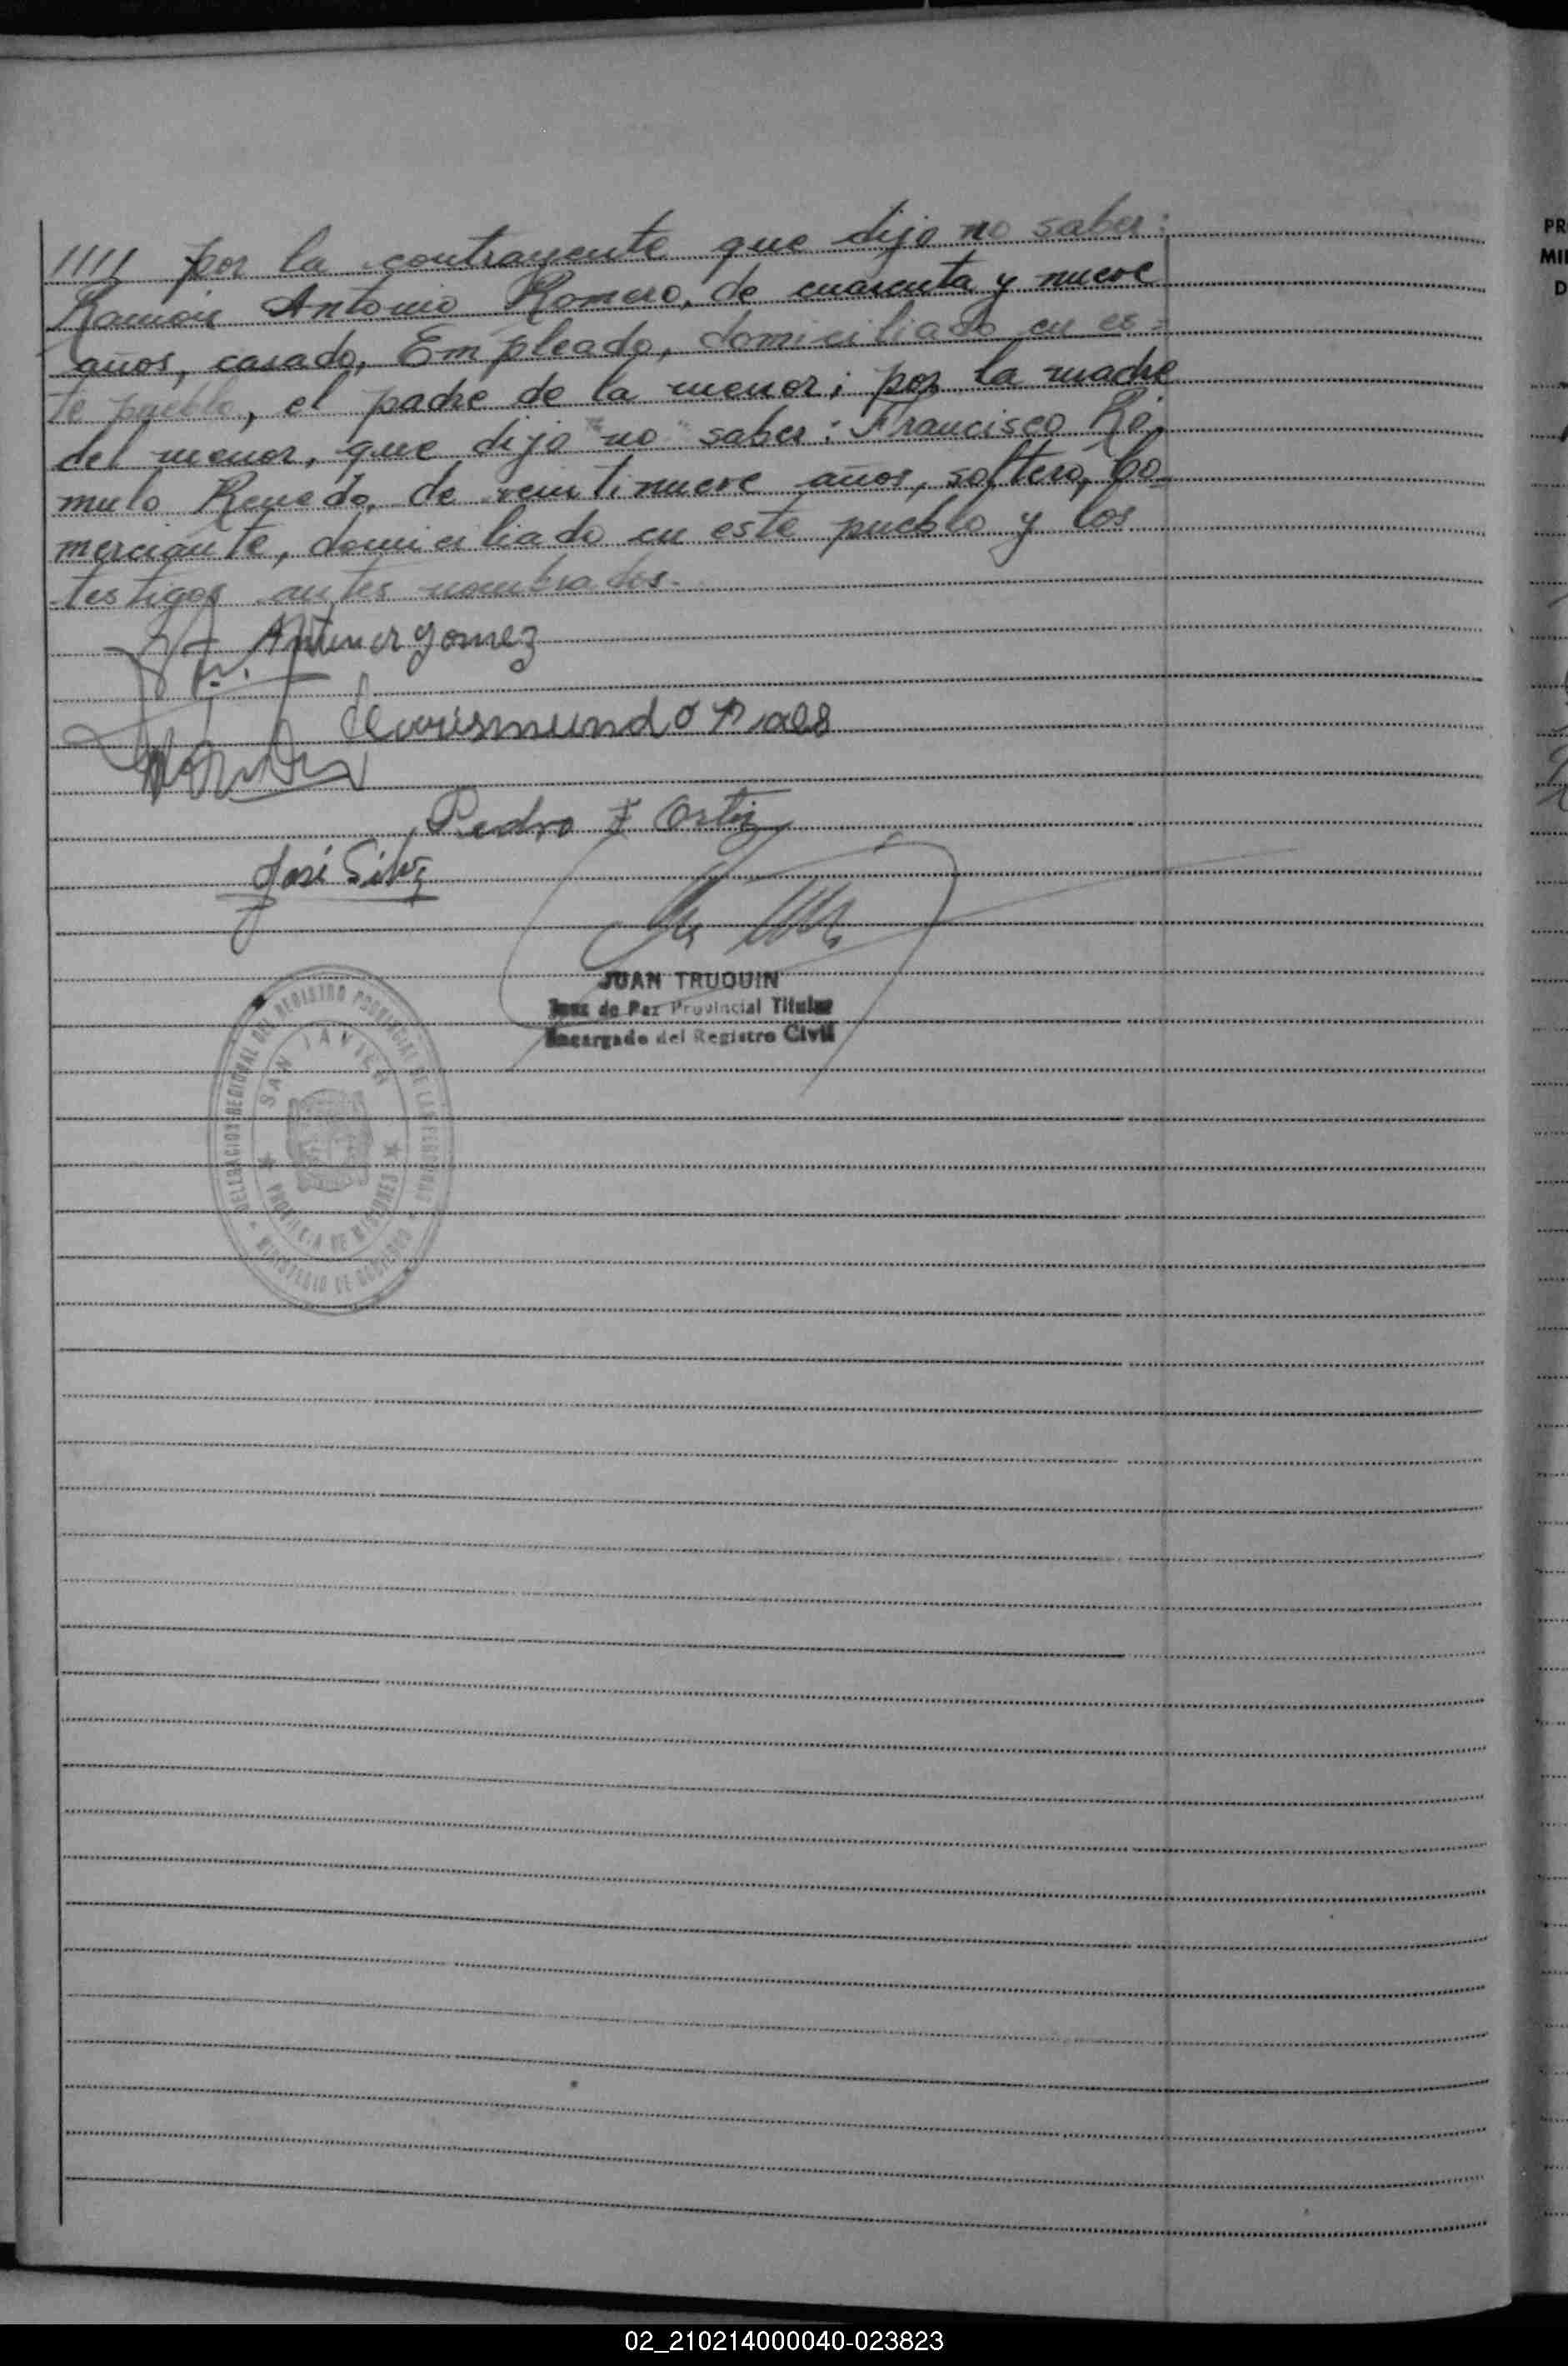 1111 por la contrayente que dijo no saber:
Ramón Antonio Romero, de cuarenta y nueve
años, casado, Empleado, domiciliado en es=
te pueblo, el padre de la menor; por la madre
del menor, que dijo "no" saber: Francisco Ró-
mulo Renedo, de veintinueve años, soltero, Co-
merciante, domiciliado en este pueblo y los
testigos antes nombrados.-
Gomez
Pedro F Ortiz
José Silva
JUAN TRUQUIN
Juez de Paz Provincial Titular
Encargado del Registro Civil
DELEGACION REGIONAL DEL REGISTRO PROVINCIAL DE LAS PERSONAS
SAN JAVIER
PROVINCIA DE MISIONES
MINISTERIO DE GOBIERNO
PR
MI
D
02_210214000040-023823